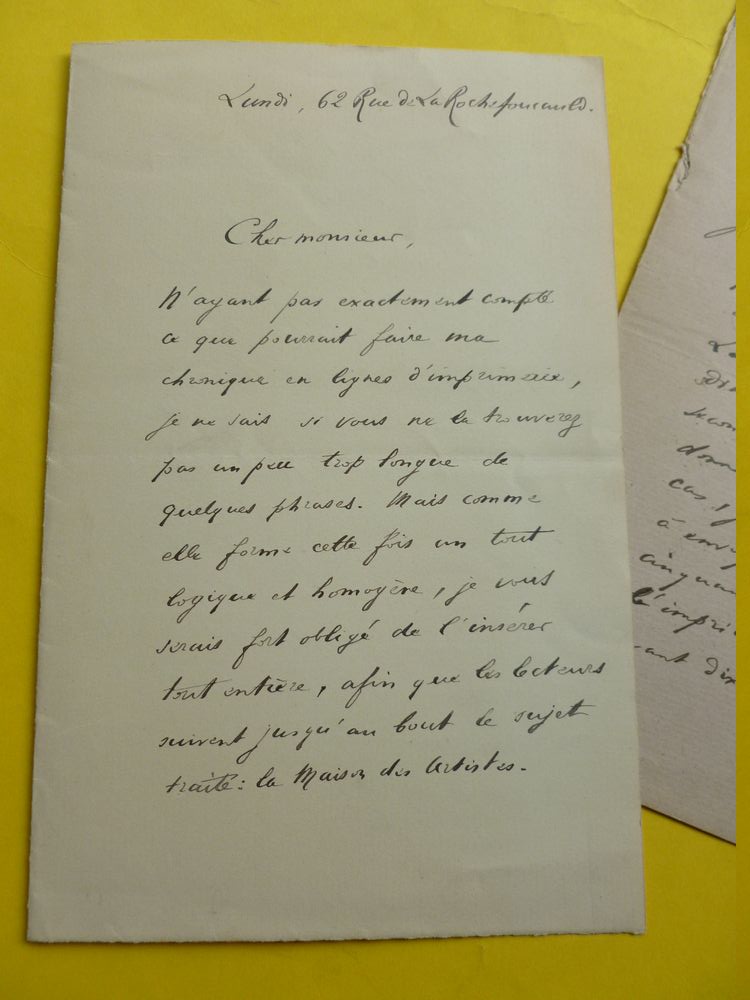 Lundi, 62 Rue de La Rochefoucauld.
Cher monsieur,
N'ayant pas exactement compté
ce que pourrait faire ma
chronique en lignes d'imprimerie,
je ne sais si vous ne la trouverez
pas un peu trop longue de
quelques phrases. Mais comme
elle forme cette fois un tout
logique et homogène, je vous
serais fort obligé de l'insérer
tout entière, afin que les lecteurs
suivent jusqu'au bout le sujet
traité: la Maison des Artistes.
donn
cas,
à env
cinquan
l'impri